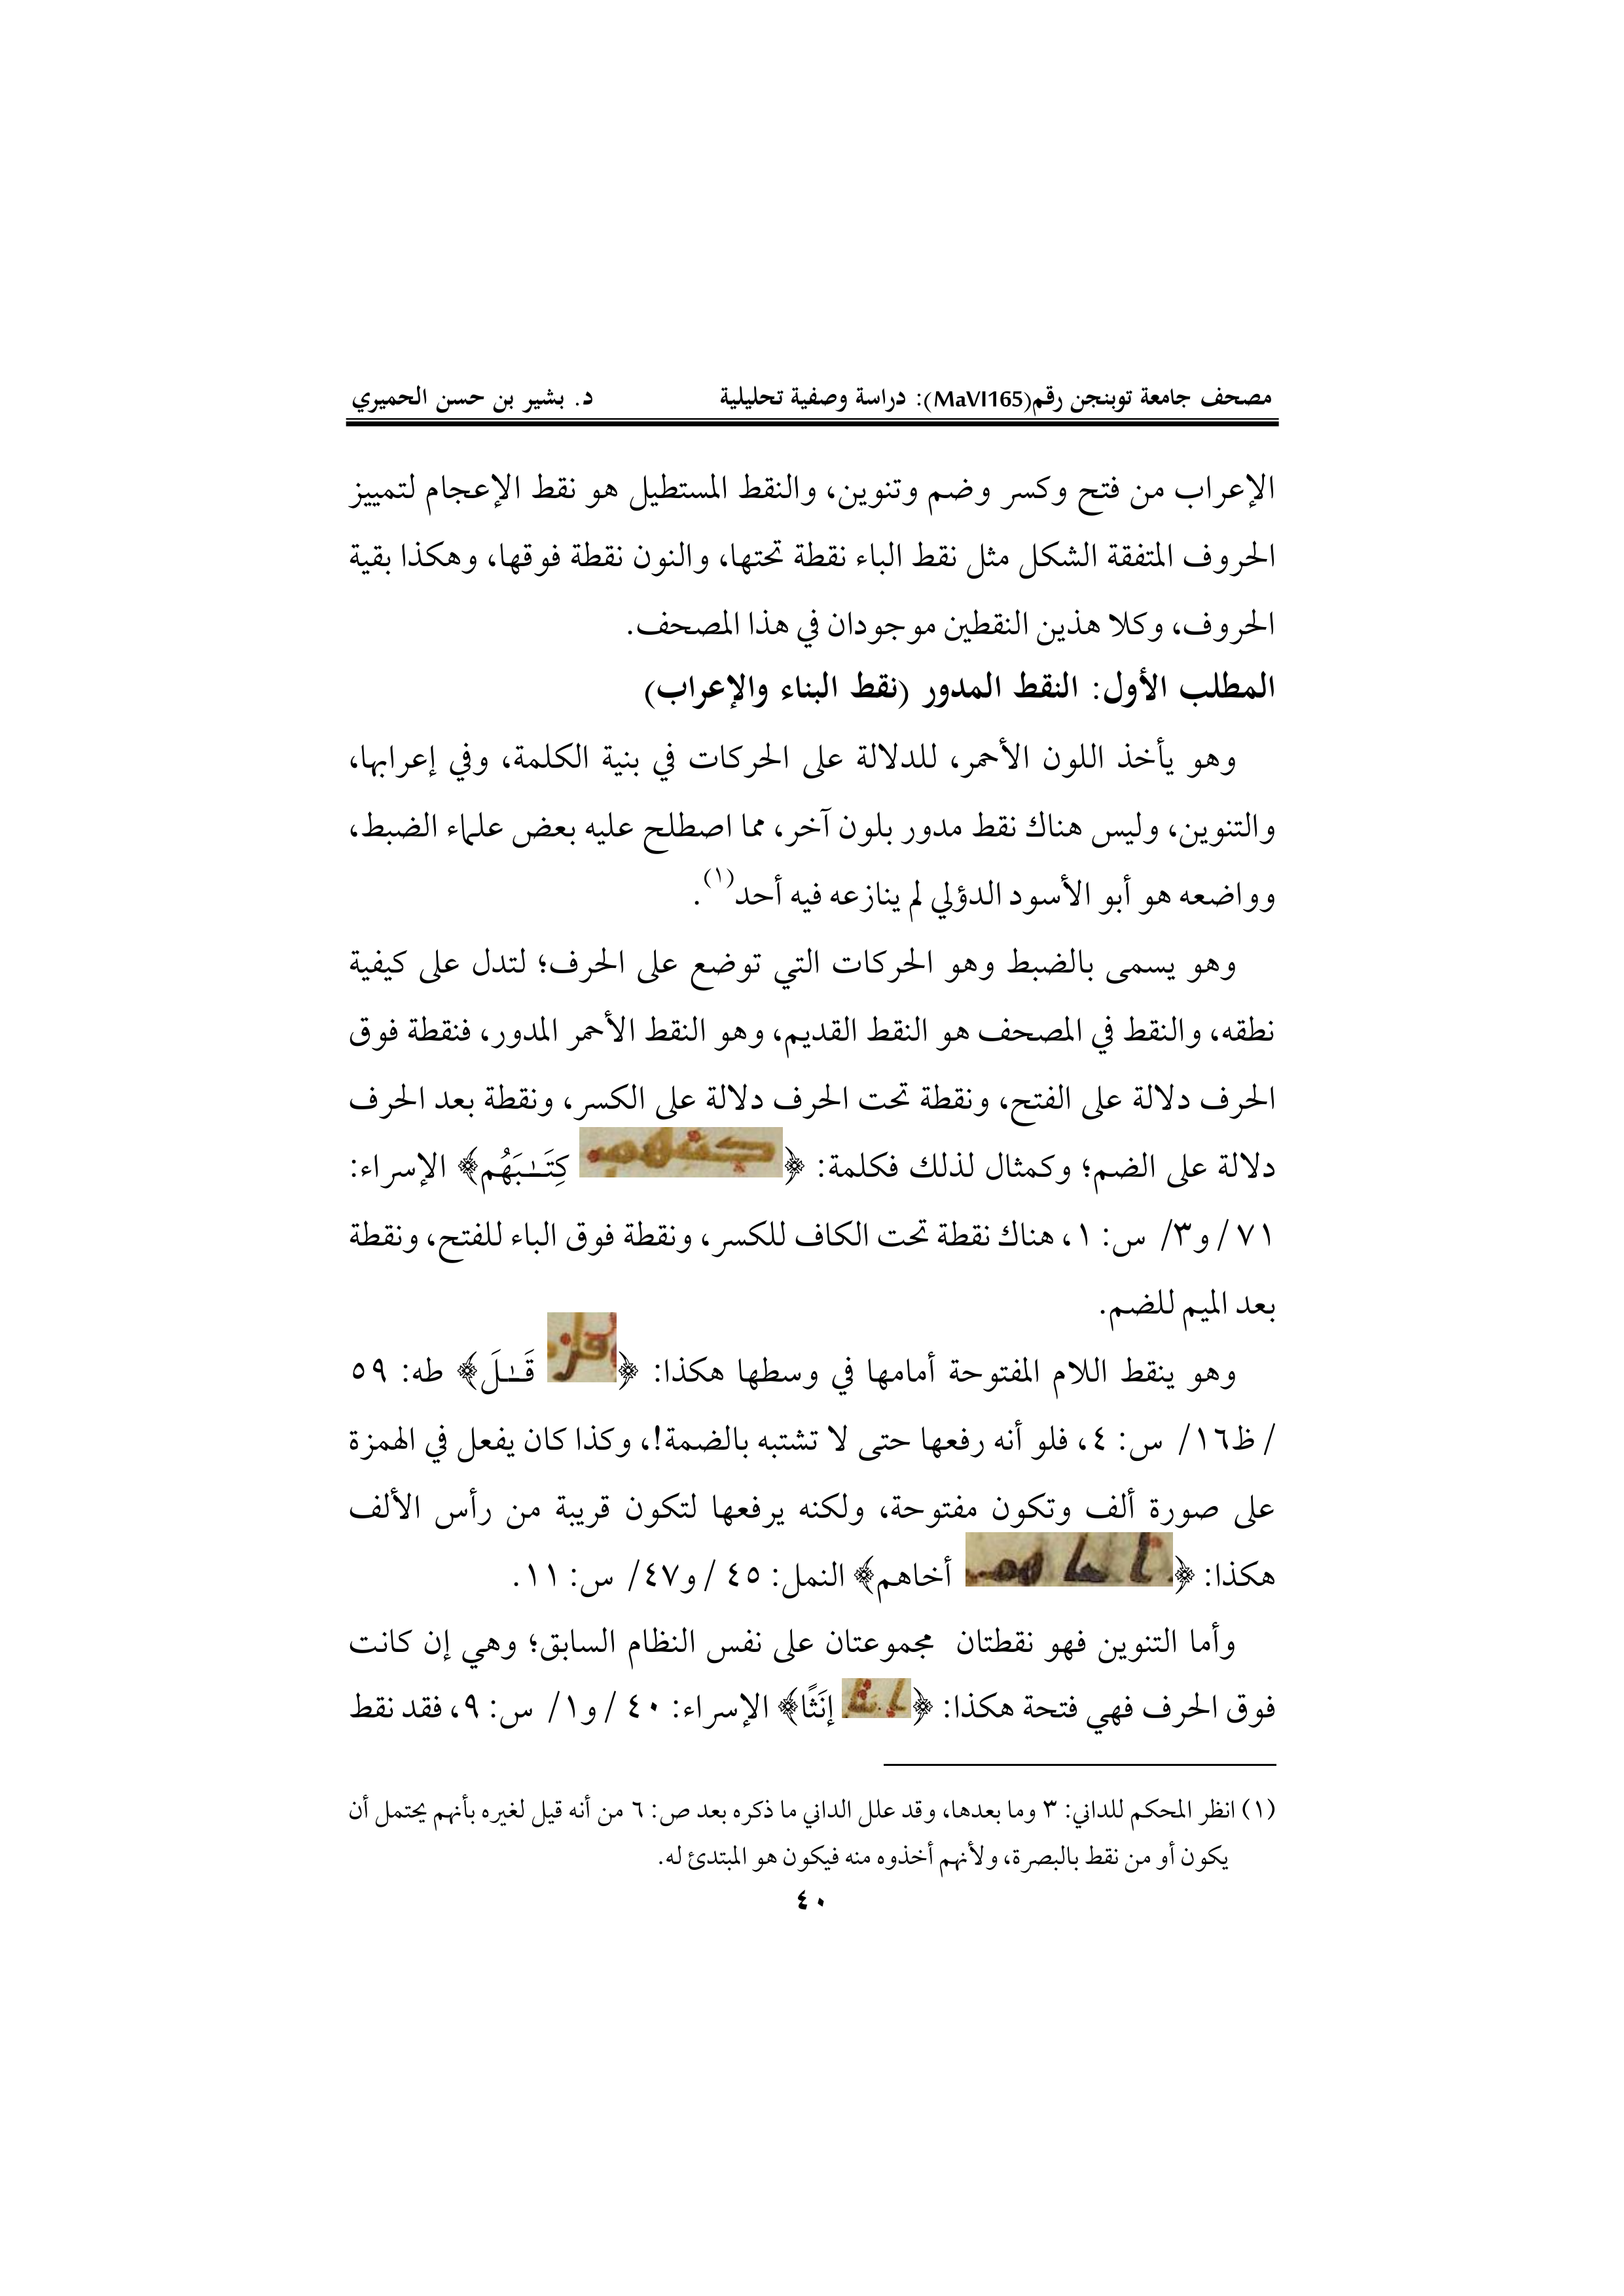 مصحف جامعة توبنجن رقم(MaVI165): دراسة وصفية تحليلية د. بشير بن حسن الحميري
الإعراب من فتح وكسر وضم وتنوين، والنقط المستطيل هو نقط الإعجام لتمييز
الحروف المتفقة الشكل مثل نقط الباء نقطة تحتها، والنون نقطة فوقها، وهكذا بقية
الحروف، وكلا هذين النقطين موجودان في هذا المصحف.
المطلب الأول: النقط المدور (نقط البناء والإعراب)
وهو يأخذ اللون الأحمر، للدلالة على الحركات في بنية الكلمة، وفي إعرابها،
والتنوين، وليس هناك نقط مدور بلون آخر، مما اصطلح عليه بعض علماء الضبط،
وواضعه هو أبو الأسود الدؤلي لم ينازعه فيه أحد(١).
وهو يسمى بالضبط وهو الحركات التي توضع على الحرف؛ لتدل على كيفية
نطقه، والنقط في المصحف هو النقط القديم، وهو النقط الأحمر المدور، فنقطة فوق
الحرف دلالة على الفتح، ونقطة تحت الحرف دلالة على الكسر، ونقطة بعد الحرف
دلالة على الضم؛ وكمثال لذلك فكلمة: ﴿كتبهم كِتَـٰبَهُم﴾ الإسراء:
٧١ / و٣/ س: ١، هناك نقطة تحت الكاف للكسر، ونقطة فوق الباء للفتح، ونقطة
بعد الميم للضم.
وهو ينقط اللام المفتوحة أمامها في وسطها هكذا: ﴿قل قَـٰلَ﴾ طه: ٥٩
/ ظ١٦/ س: ٤، فلو أنه رفعها حتى لا تشتبه بالضمة!، وكذا كان يفعل في الهمزة
على صورة ألف وتكون مفتوحة، ولكنه يرفعها لتكون قريبة من رأس الألف
هكذا: ﴿اخاهم أخاهم﴾ النمل: ٤٥ / و٤٧/ س: ١١.
وأما التنوين فهو نقطتان مجموعتان على نفس النظام السابق؛ وهي إن كانت
فوق الحرف فهي فتحة هكذا: ﴿انثا إنَثًا﴾ الإسراء: ٤٠ / و١/ س: ٩، فقد نقط
(١) انظر المحكم للداني: ٣ وما بعدها، وقد علل الداني ما ذكره بعد ص: ٦ من أنه قيل لغيره بأنهم يحتمل أن
يكون أو من نقط بالبصرة، ولأنهم أخذوه منه فيكون هو المبتدئ له.
٤٠